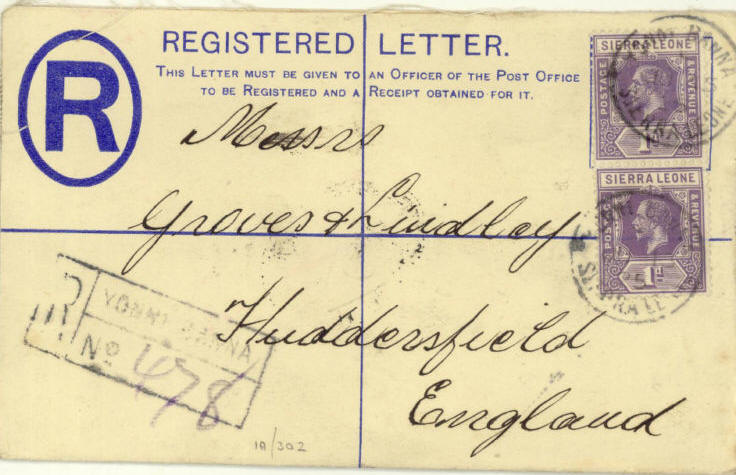 R
REGISTERED LETTER.
THIS LETTER MUST BE GIVEN TO AN OFFICER OF THE POST OFFICE
TO BE REGISTERED AND A RECEIPT OBTAINED FOR IT.
SIERRA LEONE
POSTAGE & REVENUE
SIERRA LEONE
SIERRA LEONE
POSTAGE & REVENUE
1d
SIERRA LEONE
Messrs
Groves & Lindley
Huddersfield
England
R
YONNI BANNA
No 478
1A/302